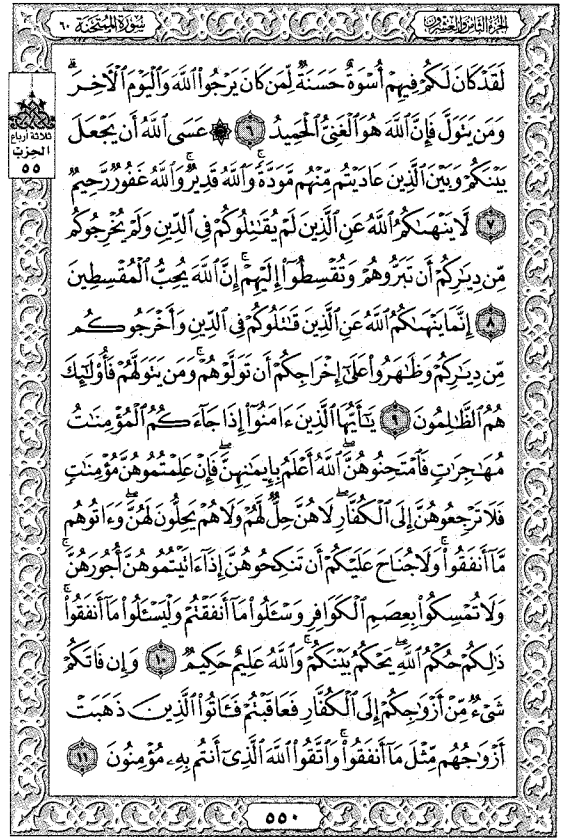 الجزء الثامن والعشرون
سورة الممتحنة ٦٠
ثلاثة أرباع
الحزب
٥٥
لَقَدْ كَانَ لَكُمْ فِيهِمْ أُسْوَةٌ حَسَنَةٌ لِّمَن كَانَ يَرْجُوا۟ ٱللَّهَ وَٱلْيَوْمَ ٱلْءَاخِرَ ۚ
وَمَن يَتَوَلَّ فَإِنَّ ٱللَّهَ هُوَ ٱلْغَنِىُّ ٱلْحَمِيدُ ٦ ۞ عَسَى ٱللَّهُ أَن يَجْعَلَ
بَيْنَكُمْ وَبَيْنَ ٱلَّذِينَ عَادَيْتُم مِّنْهُم مَّوَدَّةً ۚ وَٱللَّهُ قَدِيرٌ ۚ وَٱللَّهُ غَفُورٌ رَّحِيمٌ
٧ لَّا يَنْهَىٰكُمُ ٱللَّهُ عَنِ ٱلَّذِينَ لَمْ يُقَٰتِلُوكُمْ فِى ٱلدِّينِ وَلَمْ يُخْرِجُوكُم
مِّن دِيَٰرِكُمْ أَن تَبَرُّوهُمْ وَتُقْسِطُوٓا۟ إِلَيْهِمْ ۚ إِنَّ ٱللَّهَ يُحِبُّ ٱلْمُقْسِطِينَ
٨ إِنَّمَا يَنْهَىٰكُمُ ٱللَّهُ عَنِ ٱلَّذِينَ قَٰتَلُوكُمْ فِى ٱلدِّينِ وَأَخْرَجُوكُم
مِّن دِيَٰرِكُمْ وَظَٰهَرُوا۟ عَلَىٰٓ إِخْرَاجِكُمْ أَن تَوَلَّوْهُمْ ۚ وَمَن يَتَوَلَّهُمْ فَأُو۟لَٰٓئِكَ
هُمُ ٱلظَّٰلِمُونَ ٩ يَٰٓأَيُّهَا ٱلَّذِينَ ءَامَنُوٓا۟ إِذَا جَآءَكُمُ ٱلْمُؤْمِنَٰتُ
مُهَٰجِرَٰتٍ فَٱمْتَحِنُوهُنَّ ۖ ٱللَّهُ أَعْلَمُ بِإِيمَٰنِهِنَّ ۖ فَإِنْ عَلِمْتُمُوهُنَّ مُؤْمِنَٰتٍ
فَلَا تَرْجِعُوهُنَّ إِلَى ٱلْكُفَّارِ ۖ لَا هُنَّ حِلٌّ لَّهُمْ وَلَا هُمْ يَحِلُّونَ لَهُنَّ ۖ وَءَاتُوهُم
مَّآ أَنفَقُوا۟ ۚ وَلَا جُنَاحَ عَلَيْكُمْ أَن تَنكِحُوهُنَّ إِذَآ ءَاتَيْتُمُوهُنَّ أُجُورَهُنَّ ۚ
وَلَا تُمْسِكُوا۟ بِعِصَمِ ٱلْكَوَافِرِ وَسْـَٔلُوا۟ مَآ أَنفَقْتُمْ وَلْيَسْـَٔلُوا۟ مَآ أَنفَقُوا۟ ۚ
ذَٰلِكُمْ حُكْمُ ٱللَّهِ ۖ يَحْكُمُ بَيْنَكُمْ ۚ وَٱللَّهُ عَلِيمٌ حَكِيمٌ ١٠ وَإِن فَاتَكُمْ
شَىْءٌ مِّنْ أَزْوَٰجِكُمْ إِلَى ٱلْكُفَّارِ فَعَاقَبْتُمْ فَـَٔاتُوا۟ ٱلَّذِينَ ذَهَبَتْ
أَزْوَٰجُهُم مِّثْلَ مَآ أَنفَقُوا۟ ۚ وَٱتَّقُوا۟ ٱللَّهَ ٱلَّذِىٓ أَنتُم بِهِۦ مُؤْمِنُونَ ١١
٥٥٠